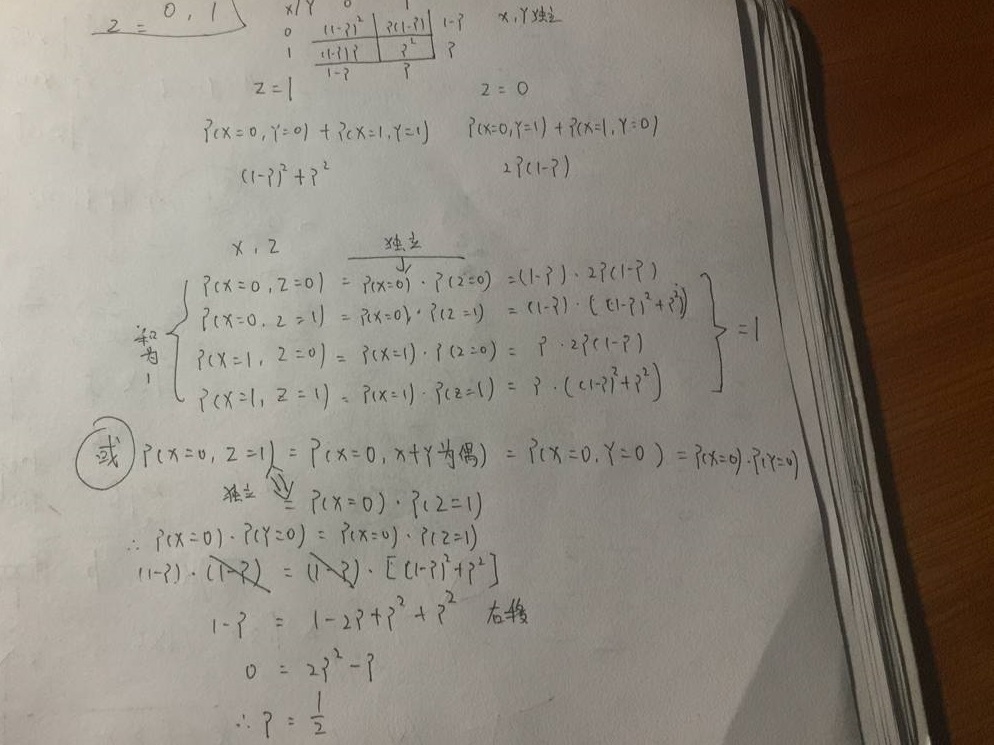 Z = 0, 1
X/Y 0 1
0 (1-P)² P(1-P) 1-P X,Y独立
1 (1-P)P P² P
1-P P
Z=1 Z=0
P(X=0,Y=0)+P(X=1,Y=1) P(X=0,Y=1)+P(X=1,Y=0)
(1-P)²+P² 2P(1-P)
X,Z 独立
P(X=0,Z=0) = P(X=0)·P(Z=0) =(1-P)·2P(1-P)
P(X=0,Z=1) = P(X=0)·P(Z=1) = (1-P)·((1-P)²+P²)
和为1 =1
P(X=1,Z=0) = P(X=1)·P(Z=0) = P·2P(1-P)
P(X=1,Z=1) = P(X=1)·P(Z=1) = P·((1-P)²+P²)
或 P(X=0,Z=1) = P(X=0,X+Y为偶) = P(X=0,Y=0) = P(X=0)·P(Y=0)
独立 = P(X=0)·P(Z=1)
∴ P(X=0)·P(Y=0) = P(X=0)·P(Z=1)
(1-P)·(1-P) = (1-P)·[(1-P)²+P²]
1-P = 1-2P+P²+P² 右移
0 = 2P²-P
∴ P = 1/2